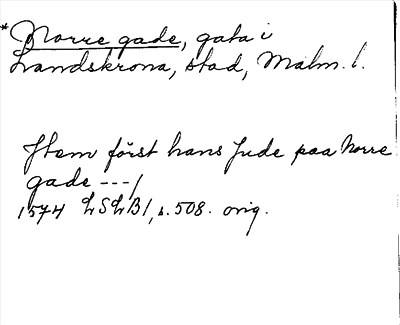 *Norre gade, gata i
Landskrona, stad, Malm. l.
Item först hans Jude paa Norre
gade ---/
1574 LSLB1, s. 508. orig.